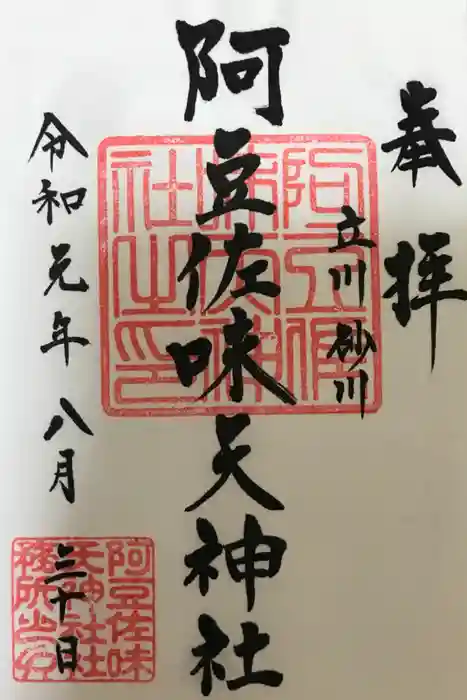 奉拝
立川 砂川
阿豆佐味天神社
令和元年八月
三十日
阿豆佐味
天神社社
務所之印